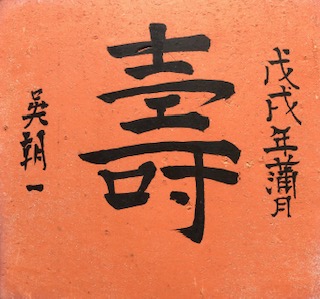 戊戌年蒲月
壽
吳朝一